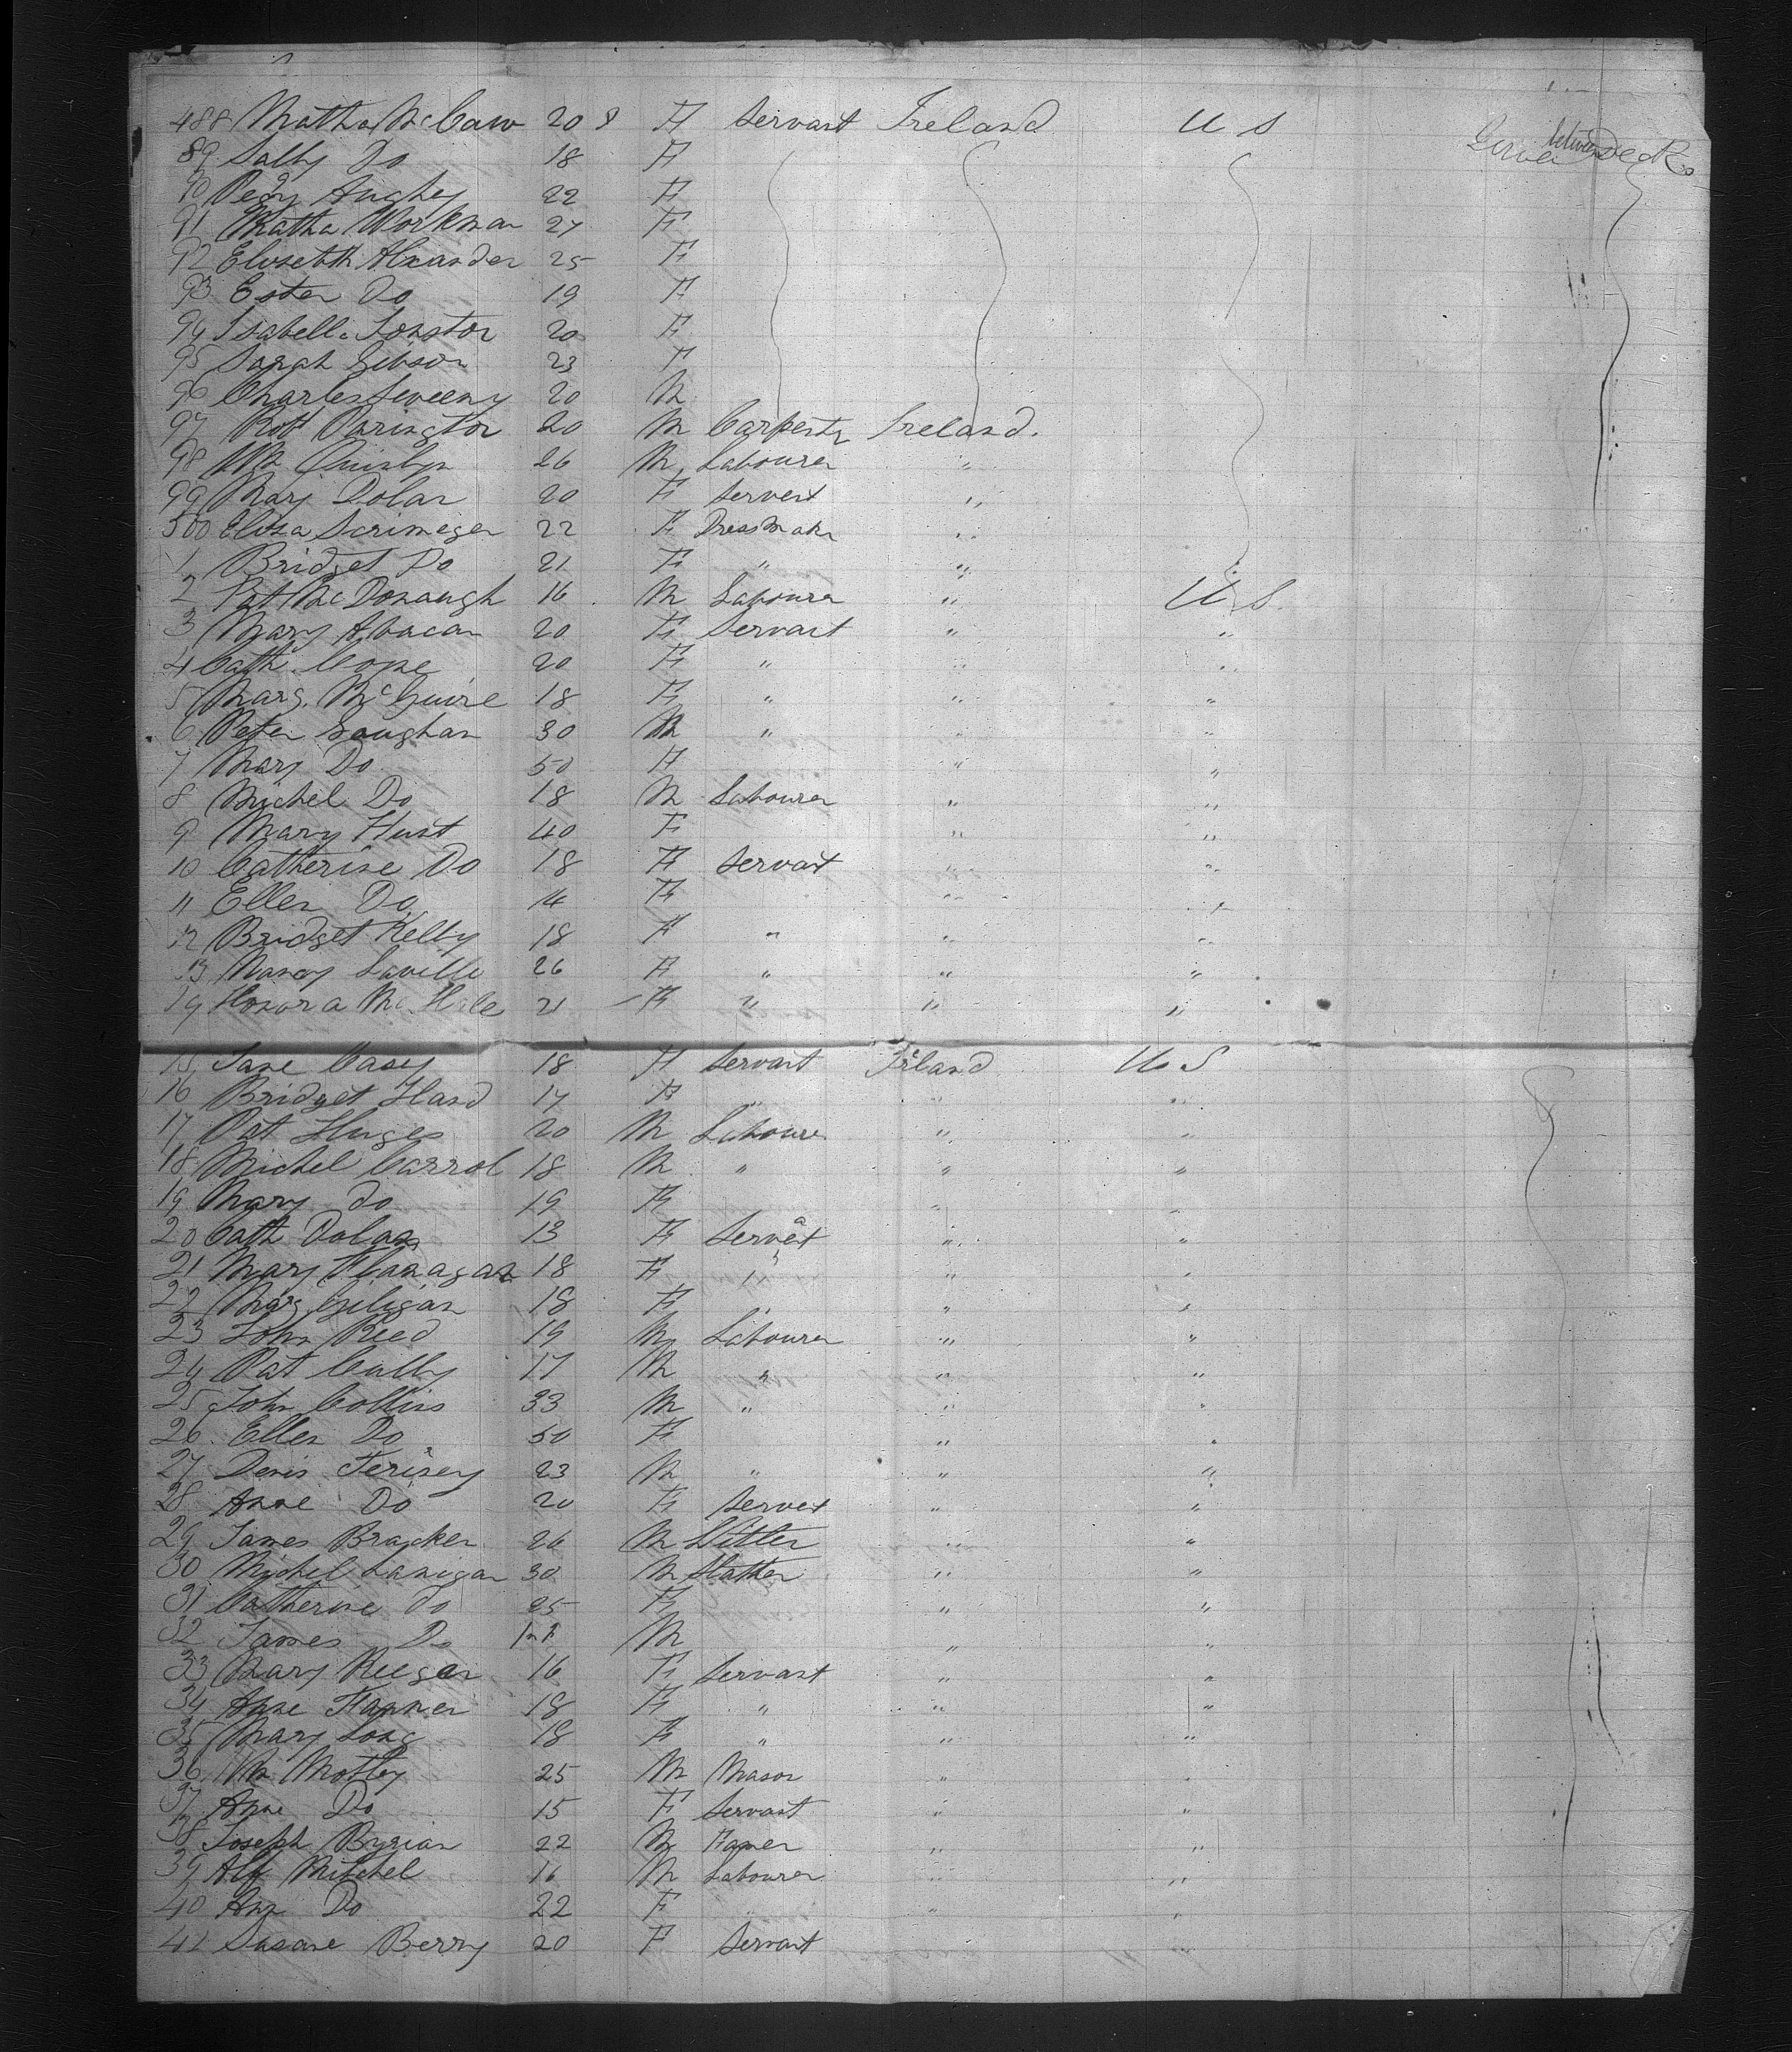 488 Matha McCaw 20 8 F Servant Ireland U S Lower between Decks
89 Sally Do 18 F
90 Pegy Aughey 22 F
91 Matha Workman 27 F
92 Elisebth Alexander 25 F
93 Ester Do 19 F
94 Isabella Jonston 20 F
95 Sarah Gibson 23 F
96 Charles Sweeny 20 M
97 Robt Parington 20 M Carpentr Ireland.
98 Wm 26 M Labourer "
99 Mary Dolan 20 F Servent "
500 Eliza Scrimeger 22 F DressMakr "
1 Bridget Do 21 F " "
2 Pat McDonaugh 16 M Labourer " U S.
3 Mary Abacan 20 F Servant " "
4 Cath. Cone 20 F " " "
5 Marg. McGuire 18 F " " "
6 Peter Gaughan 30 M " " "
7 Mary Do 50 F " "
8 Michel Do 18 M Labourer " "
9 Mary Hunt 40 F " "
10 Catherine Do 18 F Servant " "
11 Ellen Do 14 F " "
12 Bridget Kelly 18 F " " "
13 Nancy Lavelle 26 F " " "
14 Honora McHale 21 F " " "
15 Jane Casey 18 F Servant Irland U S
16 Bridget Hand 17 F " " "
17 Pat Huges 20 M Laboure " "
18 Michel Carrol 18 M " " "
19 Mary do 19 F "
20 Cath Dolan 13 F Servant " "
21 Mary Flanagan 18 F " " "
22 Marg Giligan 18 F " " "
23 John Reed 19 M Labourer " "
24 Pat Cully 17 M " " "
25 John Collins 33 M " " "
26 Ellen Do 50 F " "
27 Denis 23 M " " "
28 Anne Do 20 F Servet " "
29 James Bracken 26 M " "
30 Michel Lanigan 30 M Hatter " "
31 Catherine do 25 F " "
32 James Do Inf M " "
33 Mary Reegan 16 F Servant " "
34 Anne Fanner 18 F " " "
35 Mary Long 18 F " " "
36 Wm Motley 25 M Mason " "
37 Anne Do 15 F Servant " "
38 Joseph Byrian 22 M Famer " "
39 Alf Mitchel 16 M Labourer " "
40 Ann Do 22 F " " "
41 Susane Berry 20 F Servant "